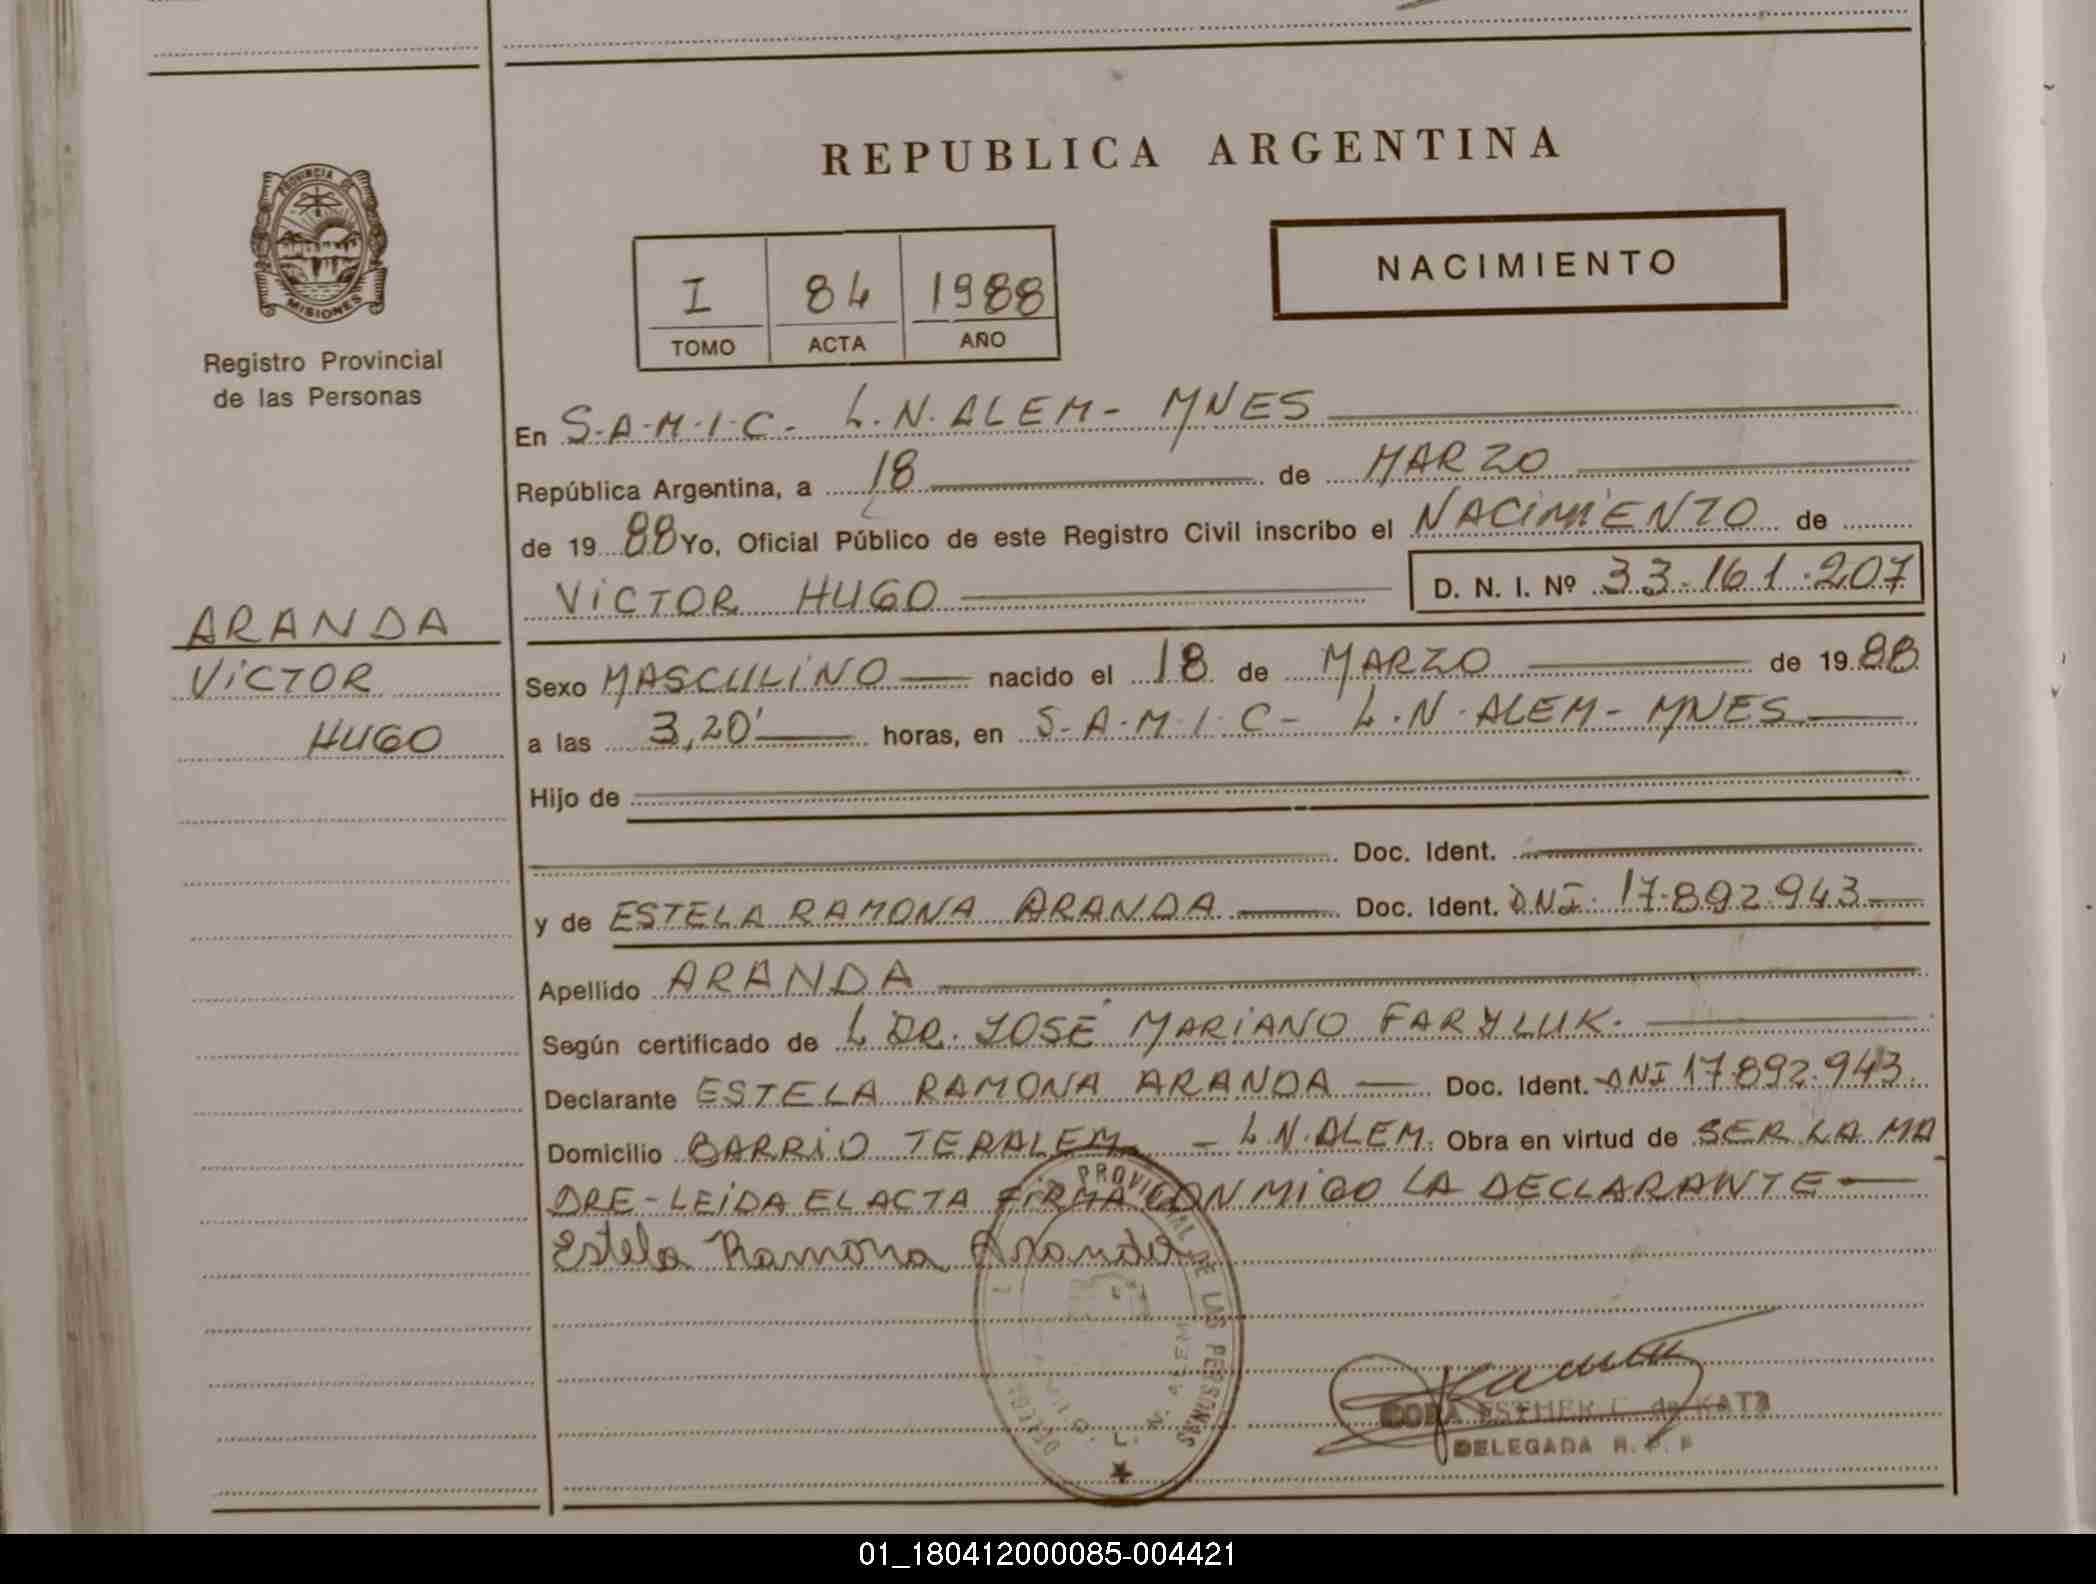 REPUBLICA ARGENTINA
PROVINCIA DE
MISIONES
Registro Provincial
de las Personas
I 84 1988
TOMO ACTA AÑO
NACIMIENTO
En S.A.M.I.C. L.N. ALEM - MNES
República Argentina, a 18 de MARZO
de 19 88 Yo, Oficial Público de este Registro Civil inscribo el NACIMIENTO de
VICTOR HUGO D. N. I. Nº 33.161.207
ARANDA
VICTOR
HUGO
Sexo MASCULINO nacido el 18 de MARZO de 19 88
a las 3,20' horas, en S.A.M.I.C - L.N. ALEM - MNES
Hijo de
Doc. Ident.
y de ESTELA RAMONA ARANDA Doc. Ident. DNI. 17.892.943
Apellido ARANDA
Según certificado de L DR. JOSÉ MARIANO FARYLUK.
Declarante ESTELA RAMONA ARANDA Doc. Ident. DNI 17.892.943
Domicilio BARRIO TERALEM - L.N. ALEM. Obra en virtud de SER LA MA
DRE - LEIDA EL ACTA FIRMA CONMIGO LA DECLARANTE
Estela Ramona Aranda
PROVINCIAL DE LAS PERSONAS
L. N. ALEM
ESTHER C. de KATZ
DELEGADA R. P. P
01_180412000085-004421